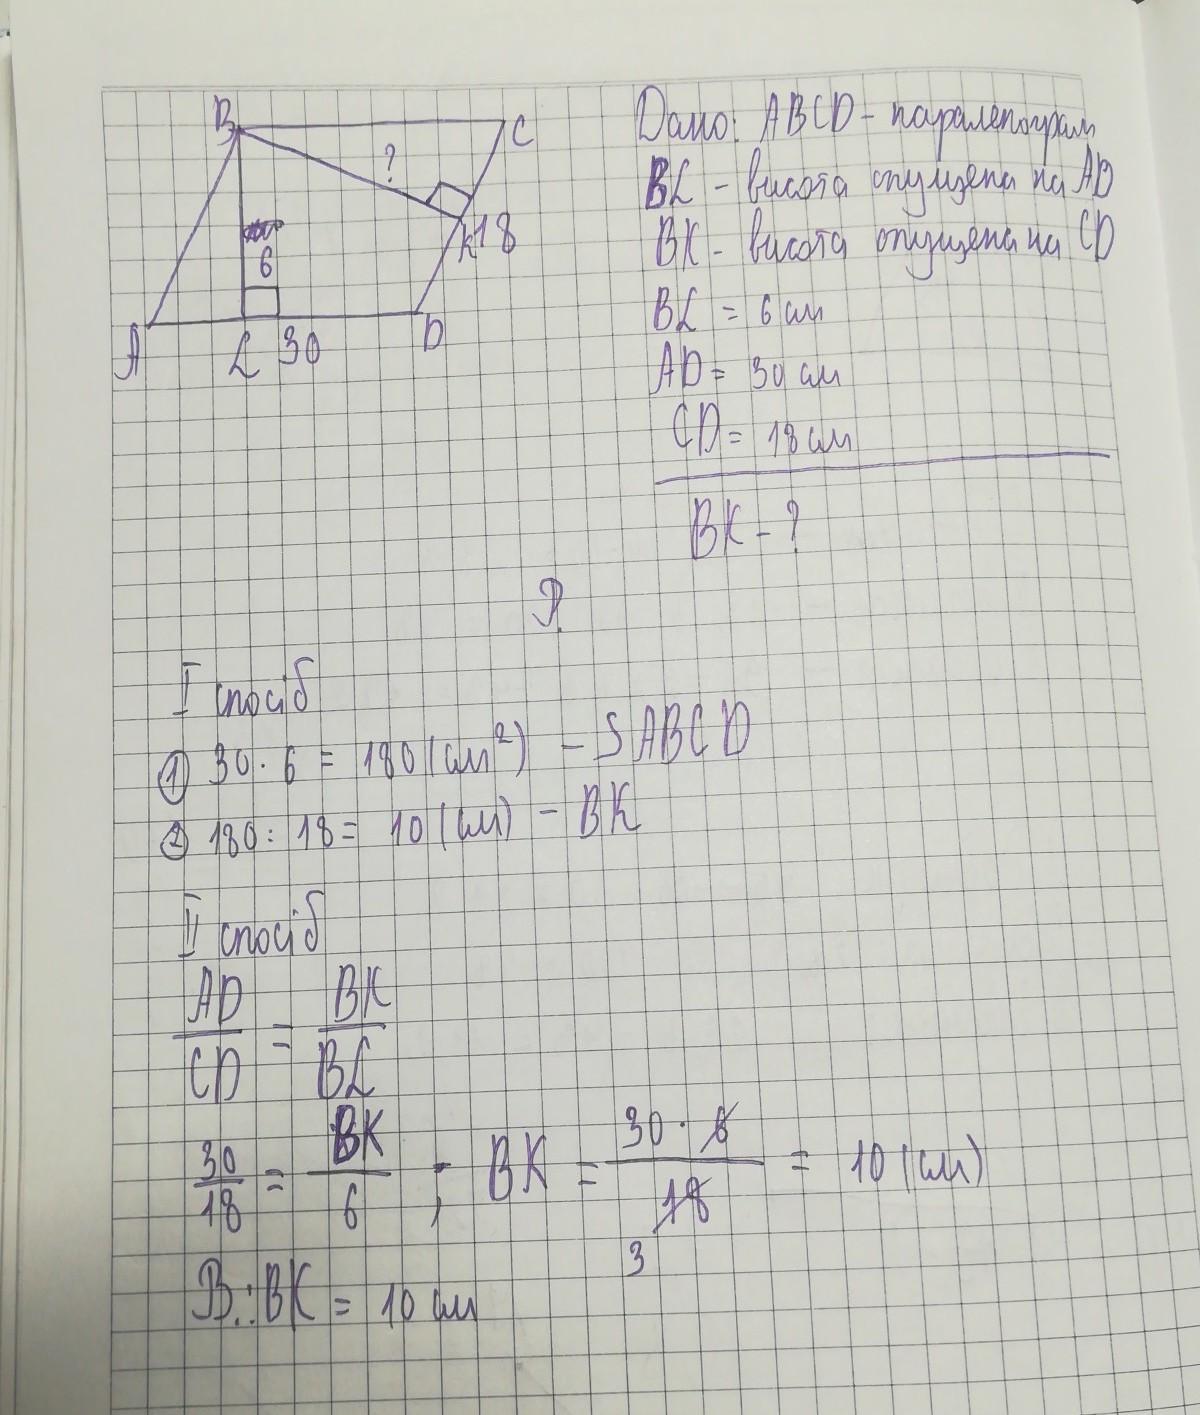 B
C
?
К 18
6
A
L 30
D
Дано: ABCD - паралелограм
BL - висота опущена на AD
BK - висота опущена на CD
BL = 6 см
AD = 30 см
CD = 18 см
BK - ?
Р.
I спосіб
① 30 · 6 = 180 (см²) - SABCD
② 180 : 18 = 10 (см) - BK
II спосіб
AD/CD = BK/BL
30/18 = BK/6 ; BK = 30 · 6/18 = 10 (см)
3
В.: BK = 10 см